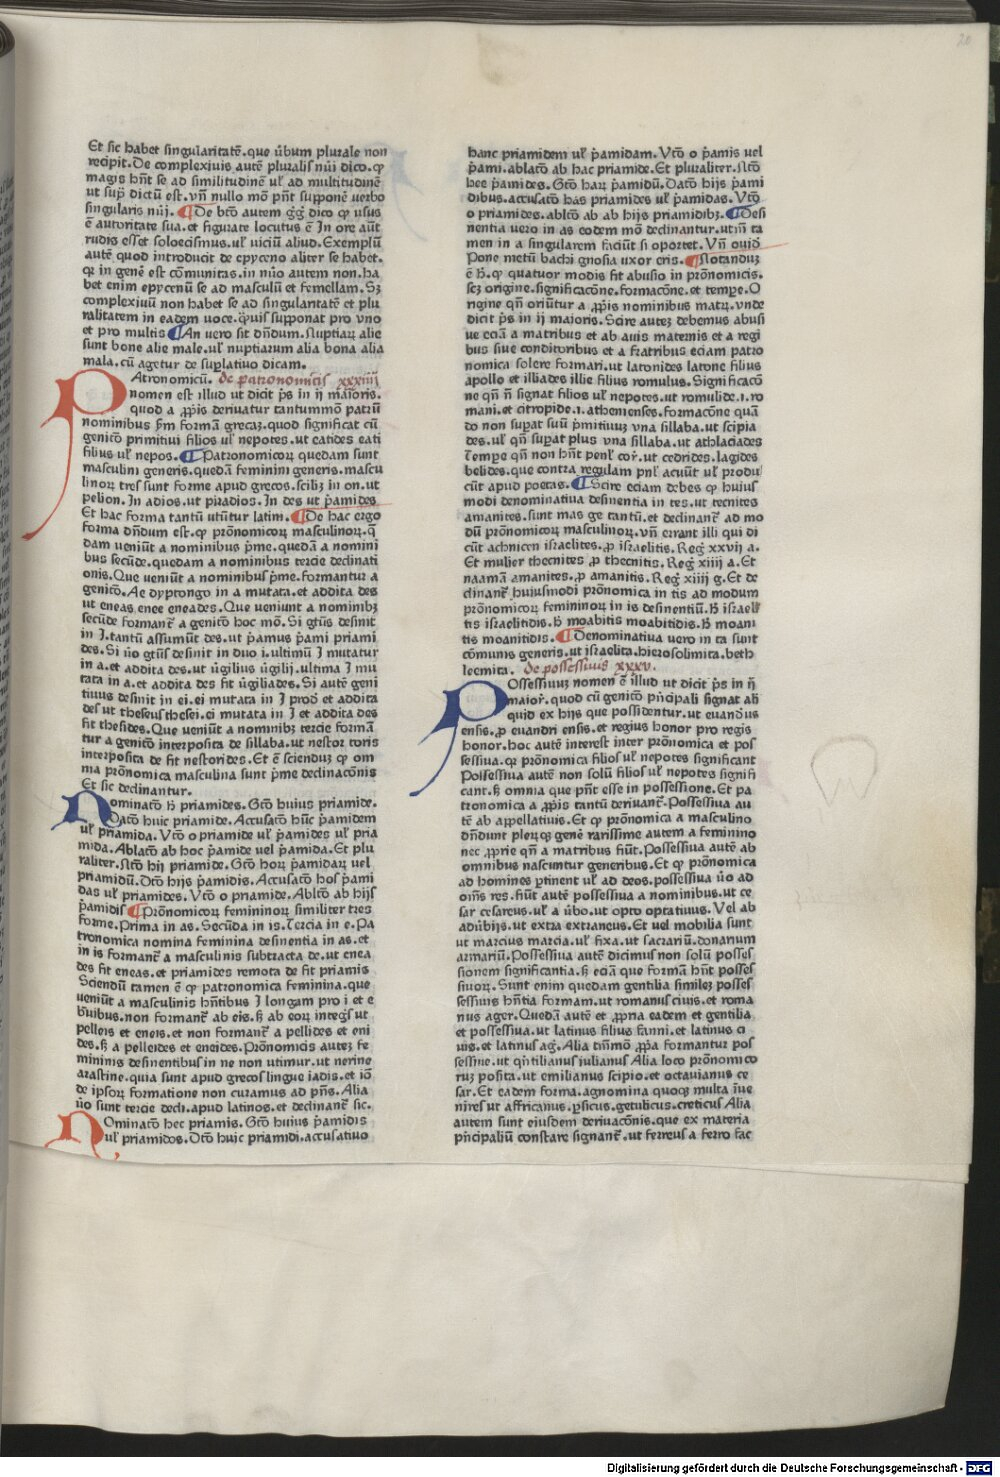 20
Et sic habet singularitatē. que v̄bum plurale non
recipit. De complexiuis autē pluralis nūi dico. ꝙ
magis hn̄t se ad similitudinē ul̓ ad multitudinē
ut sup̄ dictū est. vn̄ nullo mō pn̄t supponē uerbo
singularis nūi. ¶ De bt̄o autem gḡ dico ꝙ usus
ē autoritate sua. et figurate locutus ē In ore aūt
rudis esset soloecismus. ul̓ uiciū aliud. Exemplū
autē quod introducit de epyceno aliter se habet.
qꝛ in genē est cōmunitas. in nūo autem non. ha
bet enim epycenū se ad masculū et femellam. Sꝫ
complexiuū non habet se ad singularitatē et plu
ralitatem in eadem uoce. ꝙuis supponat pro uno
et pro multis ¶ An uero sit dn̄dum. Nuptiaꝝ alie
sunt bone alie male. ul̓ nuptiarum alia bona alia
mala. cū agetur de suplatiuo dicam.
PAtronomicū. de patronomicis xxxiiij
nomen est illud ut dicit p̄s in ij maioris.
quod a ꝓp̄is deriuatur tantummō patrū
nominibus ẜm formā grecaꝫ. quod significat cū
genit̄o primitiui filios ul̓ nepotes. ut eatides eati
filius ul̓ nepos. ¶ Patronomicoꝝ quedam sunt
masculini generis. quedā feminini generis. mascu
linoꝝ tres sunt forme apud grecos. scilicꝫ in on. ut
pelion. In adios. ut piradios. In des ut p̄amides
Et hac forma tantū utūtur latini. ¶ De hac ergo
forma dn̄dum est. ꝙ prōnomicoꝝ masculinoꝝ. q̄
dam ueniūt a nominibus p̄me. quedā a nomini
bus secūde. quedam a nominibus tercie declinati
onis. Que ueniūt a nominibus p̄me. formantur a
genit̄o. Ae dyptongo in a mutata. et addita des
ut eneas enee eneades. Que ueniunt a nominibꝫ
secūde formant̄ a genit̄o hoc mō. Si gt̄us desinit
in I. tantū assumūt des. ut p̄amus p̄ami priami
des. Si ūo gt̄us desinit in duo i. ultimū I mutatur
in a. et addita des. ut v̄gilius v̄gilij. ultima I mu
tata in a. et addita des fit v̄giliades. Si autē geni
tiuus desinit in ei. ei mutata in I prod̄ et addita
des ut theseus thesei. ei mutata in I et addita des
fit thesides. Que ueniūt a nominibꝫ tercie formā
tur a genit̄o interposita de sillaba. ut nestor toris
interposita de fit nestorides. Et ē sciendū ꝙ om
nia prōnomica masculina sunt p̄me declinacōnis
Et sic declinantur.
NOminat̄o h̄ priamides. Gt̄o huius priamide.
Dat̄o huic priamide. Accusat̄o hūc p̄amidem
ul̓ priamida. Vct̄o o priamide ul̓ p̄amides ul̓ pria
mida. Ablat̄o ab hoc p̄amide uel p̄amida. Et plu
raliter. Nt̄o hij priamide. Gt̄o hoꝝ p̄amidaꝝ uel
priamidū. Dt̄o hijs p̄amidis. Accusat̄o hos p̄ami
das ul̓ priamides. Vct̄o o priamide. Ablt̄o ab hijs
p̄amidis ¶ Prōnomicoꝝ femininoꝝ similiter tres
forme. Prima in as. Secūda in is. Tercia in e. Pa
tronomica nomina feminina desinentia in as. et
in is formant̄ a masculinis subtracta de. ut enea
des fit eneas. et priamides remota de fit priamis
Sciendū tamen ē ꝙ patronomica feminina. que
ueniūt a masculinis hn̄tibus I longam pro i et e
b̄uibus. non formant̄ ab eis. sꝫ ab eoꝝ integ̓s ut
pelleis et eneis. et non formant̄ a pellides et eni
des. sꝫ a pelleides et eneides. Prōnomicis auteꝫ fe
mininis desinentibus in ne non utimur. ut nerine
arastine. quia sunt apud grecos lingue iadis. et iō
de ipsoꝝ formatione non curamus ad pn̄s. Alia
ūo sunt tercie decli. apud latinos. et declinant̄ sic.
NOminat̄o hec priamis. Gt̄o huius p̄amidis
ul̓ priamidos. Dt̄o huic priamidi. accusatiuo
hanc priamidem ul̓ p̄amidam. Vct̄o o p̄amis uel
p̄ami. ablat̄o ab hac priamide. Et pluraliter. Nt̄o
hee p̄amides. Gt̄o haꝝ p̄amidū. Dat̄o hijs p̄ami
dibus. accusat̄o has priamides ul̓ p̄amidas. Vct̄o
o priamides. ablt̄o ab ab hijs priamidibꝫ. ¶ Desi
nentia uero in as eodem mō declinantur. utrū ta
men in a singularem faciūt si oportet. Vn̄ ouid̓
Pone metū bachi gnosia uxor eris. ¶ Notanduꝫ
ē h̄. ꝙ quatuor modis fit abusio in prōnomicis.
scꝫ origine. significacōne. formacōne. et tempe. O
rigine qn̄ oriūtur a ꝓp̄is nominibus matꝝ. vnde
dicit p̄s in ij maioris. Scire auteꝫ debemus abusi
ue eciā a matribus et ab auis maternis et a regi
bus siue conditoribus et a fratribus eciam patro
nomica solere formari. ut latonides latone filius
apollo et illiades illie filius romulus. Significacō
ne qn̄ n̄ signat filios ul̓ nepotes. ut romulide. i. ro
mani. et citropide. i. athenienses. formacōne quā
do non supat suū p̄mitiuuꝫ vna sillaba. ut scipia
des. ul̓ qn̄ supat plus vna sillaba. ut athlaciades
Tempe qn̄ non hn̄t penl̓ cor̄. ut cedrides. lagides
belides. que contra regulam pnl̓ acuūt ul̓ produ
cūt apud poetas. ¶ Scire eciam debes ꝙ huius
modi denominatiua desinentia in tes. ut tecnites
amanites. sunt mas ge tantū. et declinant̄ ad mo
dū prōnomicoꝝ masculinoꝝ. vn̄ errant illi qui di
cūt achnicen israelites. ꝓ israelitis. Reg̓ xxvij a.
Et mulier thecnites ꝓ thecnitis. Reg̓ xiiij a. Et
naamā amanites. ꝓ amanitis. Reg̓ xiiij g. Et de
clinant̄ huiusmodi prōnomica in tis ad modum
prōnomicoꝝ femininoꝝ in is desinentiū. h̄ israeli
tis israelitidis. h̄ moabitis moabitidis. h̄ moani
tis moanitidis. ¶ Denominatiua uero in ta sunt
cōmunis generis. ut israelita. hierosolimita. beth
leemita. de possessiuis xxxv.
POssessiuuꝫ nomen ē illud ut dicit p̄s in ij
maior̓. quod cū genit̄o pn̄cipali signat ali
quid ex hijs que possidentur. ut euandrius
ensis. ꝓ euandri ensis. et regius honor pro regis
honor. hoc autē interest inter prōnomica et pos
sessiua. ꝙ prōnomica filios ul̓ nepotes significant
Possessiua autē non solū filios ul̓ nepotes signifi
cant. sꝫ omnia que pn̄t esse in possessione. Et pa
tronomica a ꝓp̄is tantū deriuant̄. Possessiua au
tē ab appellatiuis. Et ꝙ prōnomica a masculino
dn̄dunt plerūqꝫ genē rarissime autem a feminino
nec ꝓprie qn̄ a matribus fiūt. Possessiua autē ab
omnibus nascuntur generibus. Et ꝙ prōnomica
ad homines ꝑtinent ul̓ ad deos. possessiua ūo ad
om̄s res. fiūt autē possessiua a nominibus. ut ce
sar cesareus. ul̓ a v̄bo. ut opto optatiuus. Vel ab
adūbijs. ut extra extraneus. Et uel mobilia sunt
ut marcius marcia. ul̓ fixa. ut sacrariū. donarium
armariū. Possessiua autē dicimus non solū posses
sionem significantia. sꝫ eciā que formā hn̄t posses
siuoꝝ. Sunt enim quedam gentilia similes posses
sessiuis hn̄tia formam. ut romanus ciuis. et roma
nus ager. Quedā autē et ꝓpria eadem et gentilia
et possessiua. ut latinus filius fanni. et latinus ci
uis. et latinus ag̓. Alia tn̄mō ꝓp̄a formantur pos
sessiue. ut qn̄tilianus iulianus Alia loco prōnomico
ruꝫ posita. ut emilianus scipio. et octauianus ce
sar. Et eadem forma. agnomina quoqꝫ multa īue
nires ut affricanus. ꝑsicus. getulicus. creticus Alia
autem sunt eiusdem deriuacōnis. que ex materia
pn̄cipaliū constare signant̄. ut ferreus a ferro fac
Digitalisierung gefördert durch die Deutsche Forschungsgemeinschaft - DFG